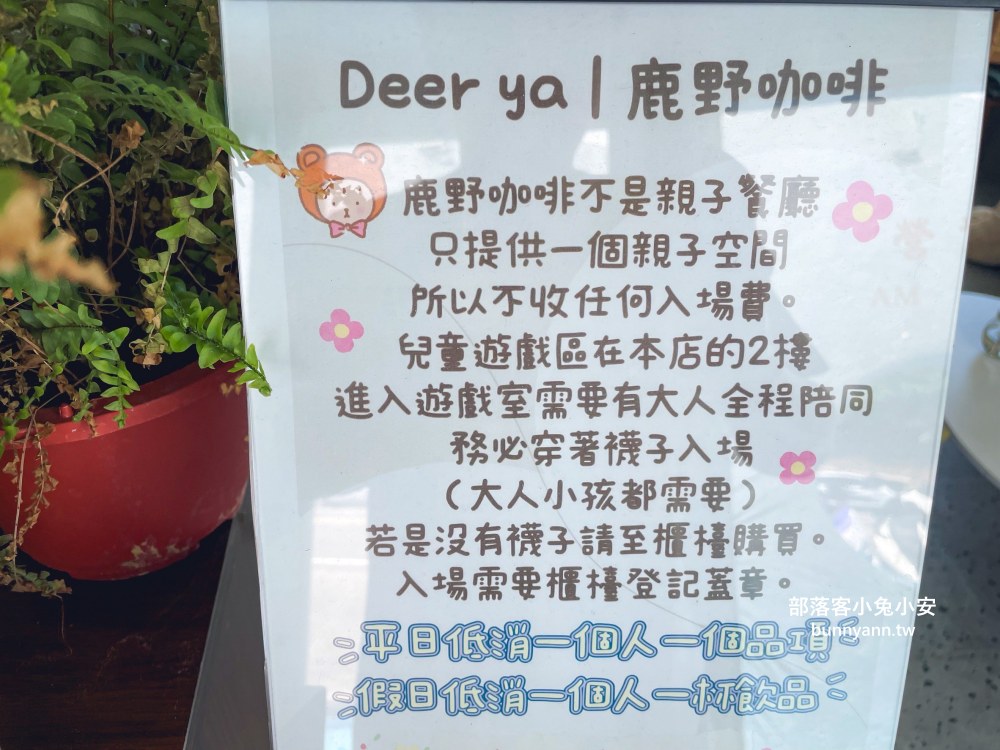 Deer ya | 鹿野咖啡
鹿野咖啡不是親子餐廳
只提供一個親子空間
所以不收任何入場費。
兒童遊戲區在本店的2樓
進入遊戲室需要有大人全程陪同
務必穿著襪子入場
（大人小孩都需要）
若是沒有襪子請至櫃檯購買。
入場需要櫃檯登記蓋章。
部落客小兔小安
bunnyann.tw
平日低消一個人一個品項
假日低消一個人一杯飲品